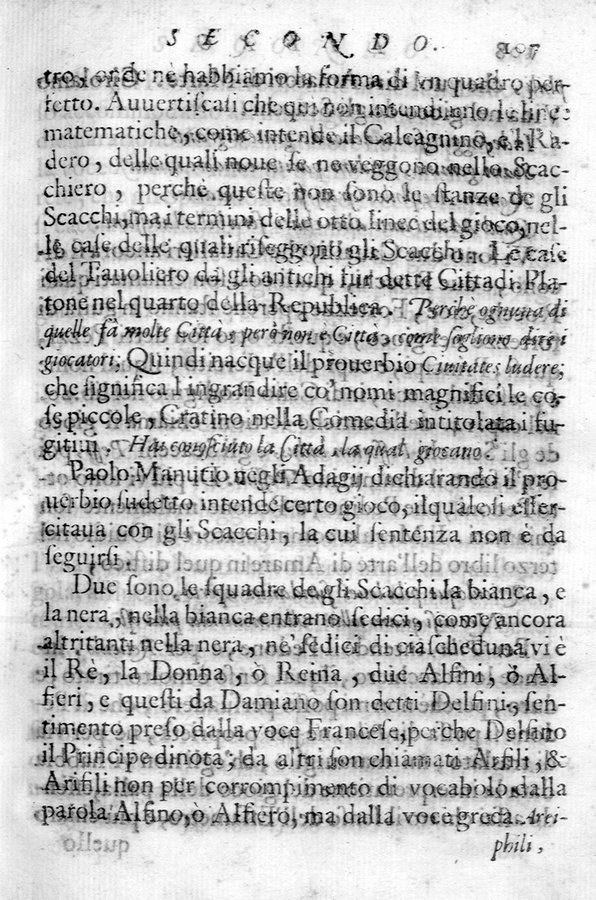 SECONDO. 107
tro, onde nè habbiamo la forma di vn quadro per-
fetto. Auuertiscasi che qui non intendiamo le linee
matematiche, come intende il Calcagnino, e'l Ra-
dero, delle quali noue se ne veggono nello Scac-
chiero, perchè queste non sono le stanze de gli
Scacchi, ma i termini delle otto linee del gioco, nel-
le case delle quali riseggono gli Scacchi. Le case
del Tauoliero da gli antichi fur dette Città di Pla-
tone nel quarto della Republica. Perchè ogn'una di
quelle fà molte Città, però non è Città, come sogliono dire i
giocatori; Quindi nacque il prouerbio Ciuitates ludere;
che significa l'ingrandire co' nomi magnifici le co-
se piccole, Cratino nella Comedia intitolata i fu-
gitiui. Hai conosciuto la Città, la qual giocano?
Paolo Manutio negli Adagij dichiarando il pro-
uerbio sudetto intende certo gioco, il quale si esser-
citaua con gli Scacchi, la cui sentenza non è da
seguirsi.
Due sono le squadre de gli Scacchi la bianca, e
la nera, nella bianca entrano sedici, come ancora
altritanti nella nera, ne' sedici di ciascheduna vi è
il Rè, la Donna, ò Reina, due Alfini, ò Al-
fieri, e questi da Damiano son detti Delfini, sen-
timento preso dalla voce Francese, perche Delfino
il Principe dinota; da altri son chiamati Arfili, &
Arifili non per corrompimento di vocabolo dalla
parola Alfino, ò Alfiero, ma dalla voce greca Arei-
phili,